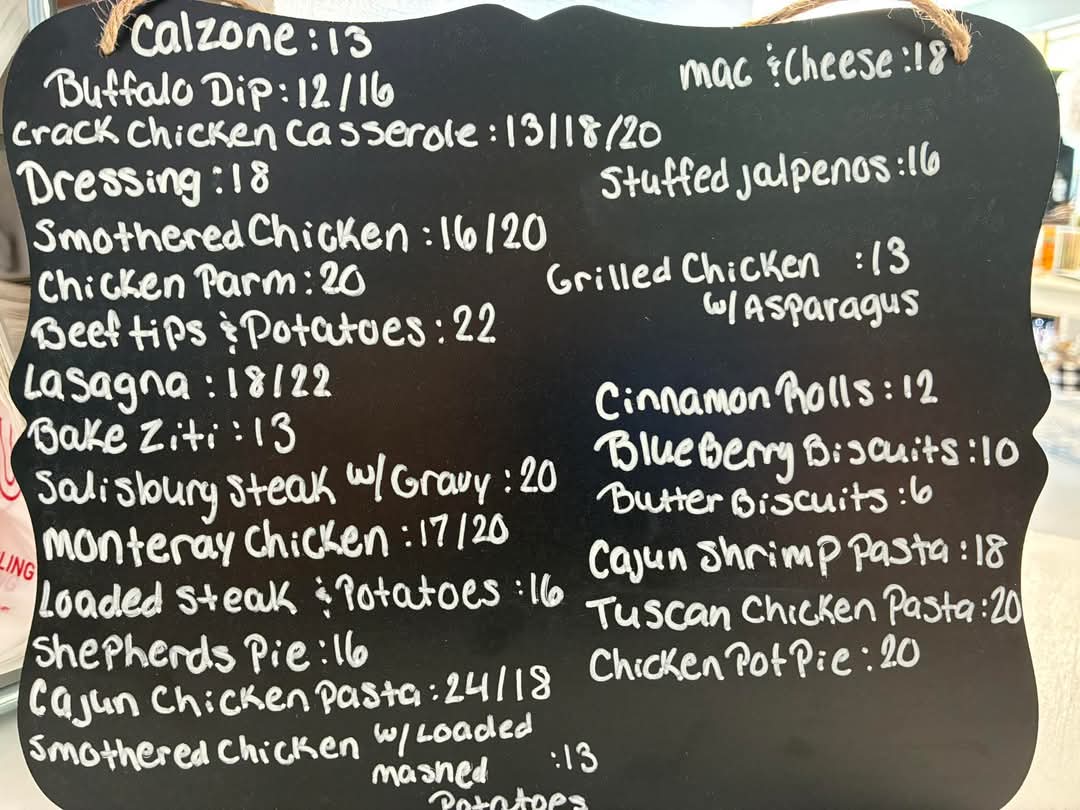 Calzone : 13
Buffalo Dip : 12/16
Crack Chicken Casserole : 13/18/20
Dressing : 18
Smothered Chicken : 16/20
Chicken Parm : 20
Beef tips & Potatoes : 22
Lasagna : 18/22
Bake Ziti : 13
Salisbury Steak w/ Gravy : 20
Monteray Chicken : 17/20
Loaded Steak & Potatoes : 16
Shepherds Pie : 16
Cajun Chicken Pasta : 24/18
Smothered Chicken w/ Loaded
mashed : 13
Potatoes
mac & Cheese : 18
Stuffed jalpenos : 16
Grilled Chicken : 13
w/ Asparagus
Cinnamon Rolls : 12
BlueBerry Biscuits : 10
Butter Biscuits : 6
Cajun Shrimp Pasta : 18
Tuscan Chicken Pasta : 20
Chicken Pot Pie : 20
LING